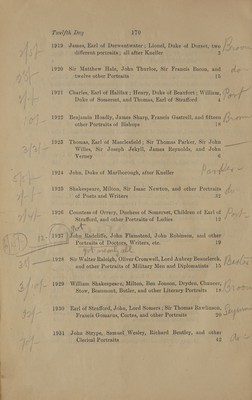 Twelfth Day 170
1919 James, Earl of Derwentwater; Lionel, Duke of Dorset, two
different portraits; all after Kneller 5
1920 Sir Matthew Hale, John Thurloe, Sir Francis Bacon, and
twelve other Portraits 15
1921 Charles, Earl of Halifax; Henry, Duke of Beaufort; William,
Duke of Somerset, and Thomas, Earl of Strafford 4
1922 Benjamin Hoadly, James Sharp, Francis Gastrell, and fifteen
other Portraits of Bishops 18
1923 Thomas, Earl of Macclesfield; Sir Thomas Parker, Sir John
Willes, Sir Joseph Jekyll, James Reynolds, and John
Verney 6
1924 John, Duke of Marlborough, after Kneller
1925 Shakespeare, Milton, Sir Isaac Newton, and other Portraits
of Poets and Writers
1926 Countess of Orrery, Duchess of Somerset, Children of Earl of
Strafford, and other Portraits of Ladies 12
1927 John Radcliffe, John Flamsteed, John Robinson, and other
Portraits of Doctors, Writers, etc. 19
1928 Sir Walter Raleigh, Oliver Cromwell, Lord Aubrey Beauclerck,
and other Portraits of Military Men and Diplomatists 15
1929 William Shakespeare, Milton, Ben Jonson, Dryden, Chaucer,
Stow, Beaumont, Butler, and other Literary Portraits 18
1930 Earl of Strafford, John, Lord Somers; Sir Thomas Rawlinson,
Francis Gomarus, Cortes, and other Portraits 20
1931 John Strype, Samuel Wesley, Richard Bentley, and other
Clerical Portraits 42